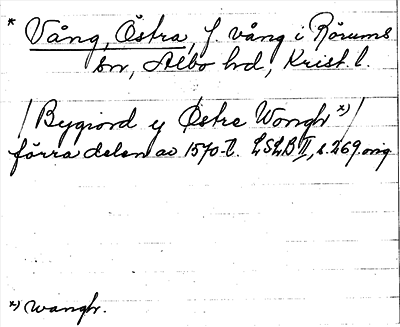 * Vång, Östra, f. vång i Rörums
sn, Albo hd, Krist. l.
/Bygiord y Östre Wongh *)/
förra delen av 1570-t. LSLB II, s. 269. orig
*) wanghr.